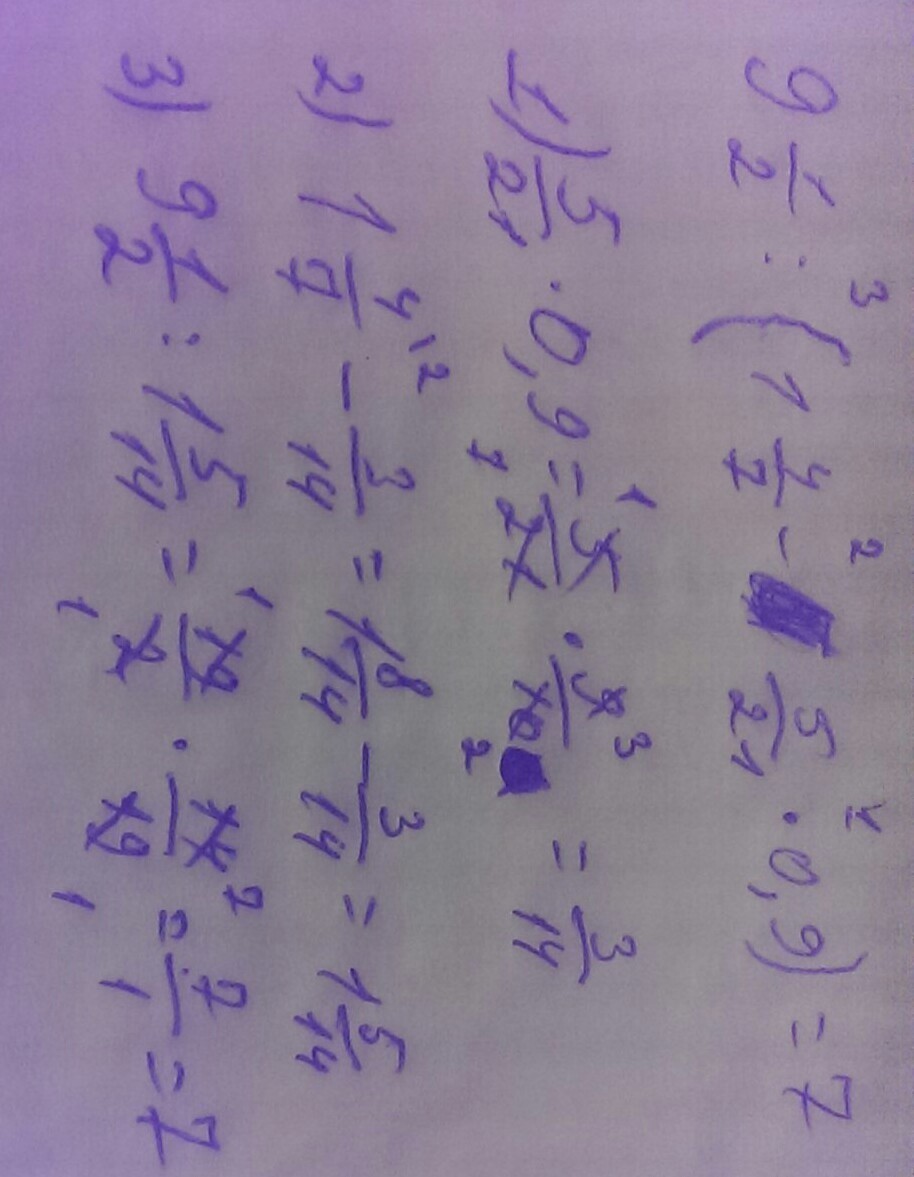 9 1/2 : (1 4/7 - 5/21 · 0,9) = 7
1) 5/21 · 0,9 = 5/21 · 9/10 = 3/14
2) 1 4/7 - 3/14 = 1 8/14 - 3/14 = 1 5/14
3) 9 1/2 : 1 5/14 = 19/2 · 14/19 = 7/1 = 7